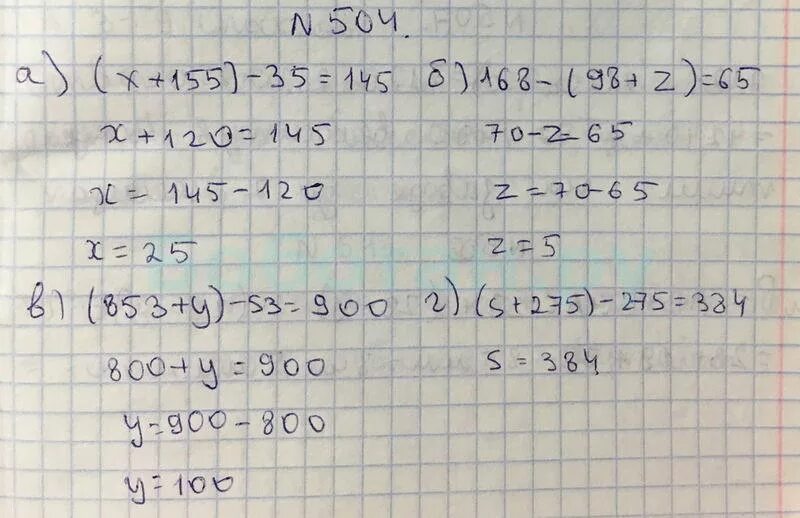 N 504.
а) (x+155)-35=145 б) 168-(98+z)=65
x+120=145 70-z=65
x=145-120 z=70-65
x=25 z=5
в) (853+y)-53=900 г) (s+275)-275=384
800+y=900 s=384
y=900-800
y=100